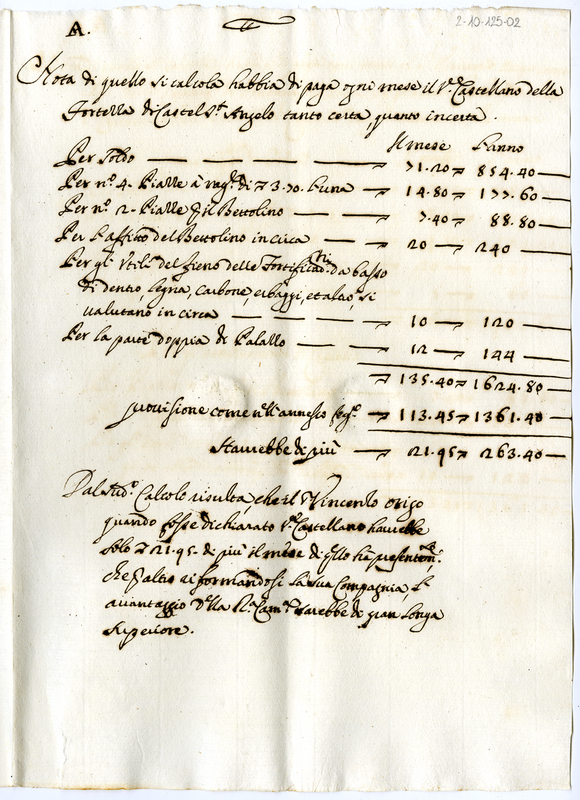 A.
2-10-125-02
Nota di quello si calcola habbia di paga ogni mese il V.e Castellano della
Fortezza di Castel S.t Angelo tanto certa, quanto incerta.
Il mese L'anno
Per soldo 71.20 854.40
Per n.o 4. Piazze à rag.e di 3.70. l'una 14.80 177.60
Per n.o 2. Piazze p il Bettolino 7.40 88.80
Per l'affitto del Bettolino in circa 20 240
Per gl'Utili del fieno delle Fortificaz.ni da basso
di dentro, legna, carbone, erbaggi, et altro, si
valutano in circa 10 120
Per la parte doppia di Palazzo 12 144
135.40 1624.80
provisione come nell'annesso fog.o 113.45 1361.40
Havrebbe di più 21.95 263.40
Dal sud.o Calcolo risulta, che il Vincenzo Origo
quando fosse dichiarato V.e Castellano havrebbe
solo 21.95 di più il mese di qllo hà presentem.te
che p altro riformandosi la sua Compagnia, l'
avantaggio d'lla R.a Cam.a sarebbe di gran longa
superiore.